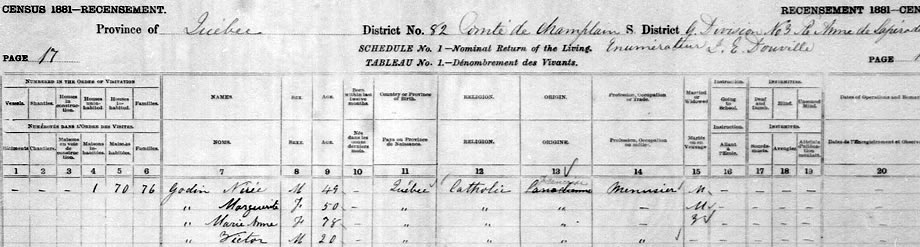 CENSUS 1881—RECENSEMENT. RECENSEMENT 1881—CEN
Province of Québec District No. 82 Comté de Champlain S. District G Division No 3 Ste Anne de
SCHEDULE No. 1—Nominal Return of the Living. Enumérateur J. E. Douville
PAGE 17 TABLEAU No. 1.—Dénombrement des Vivants. PAGE
NUMBERED IN THE ORDER OF VISITATION
Vessels. Shanties. Houses in construction. Houses uninhabited. Houses inhabited. Families. NAMES. SEX. AGE. Born within last twelve months. Country or Province of Birth. RELIGION. ORIGIN. Profession, Occupation or Trade. Married or Widowed Instruction. Going to School. INFIRMITIES. Deaf and Dumb. Blind. Unsound Mind. Dates of Operations and
NUMÉROTÉS DANS L'ORDRE DES VISITES.
Bâtiments Chantiers. Maisons en voie de construction. Maisons inhabitées. Maisons habitées. Familles. NOMS. SEXE. AGE. Nés dans les douze derniers mois. Pays ou Province de Naissance. RELIGION. ORIGINE. Profession, Occupation ou métier. Mariés ou en Veuvage Instruction. Allant à l'École. INFIRMITÉS. Sourds-Muets. Aveugles. Dates de l'Enregistrement et
1 2 3 4 5 6 7 8 9 10 11 12 13 14 15 16 17 18 19 20
— — — 1 70 76 Godin M 49 — Québec Catholic Canadienne Menusier M — — — —
" Marguerite F 50 — " " " M — — — —
" Marie Anne F 78 — " " " — — — —
" Victor M 20 — " " " " — — — —